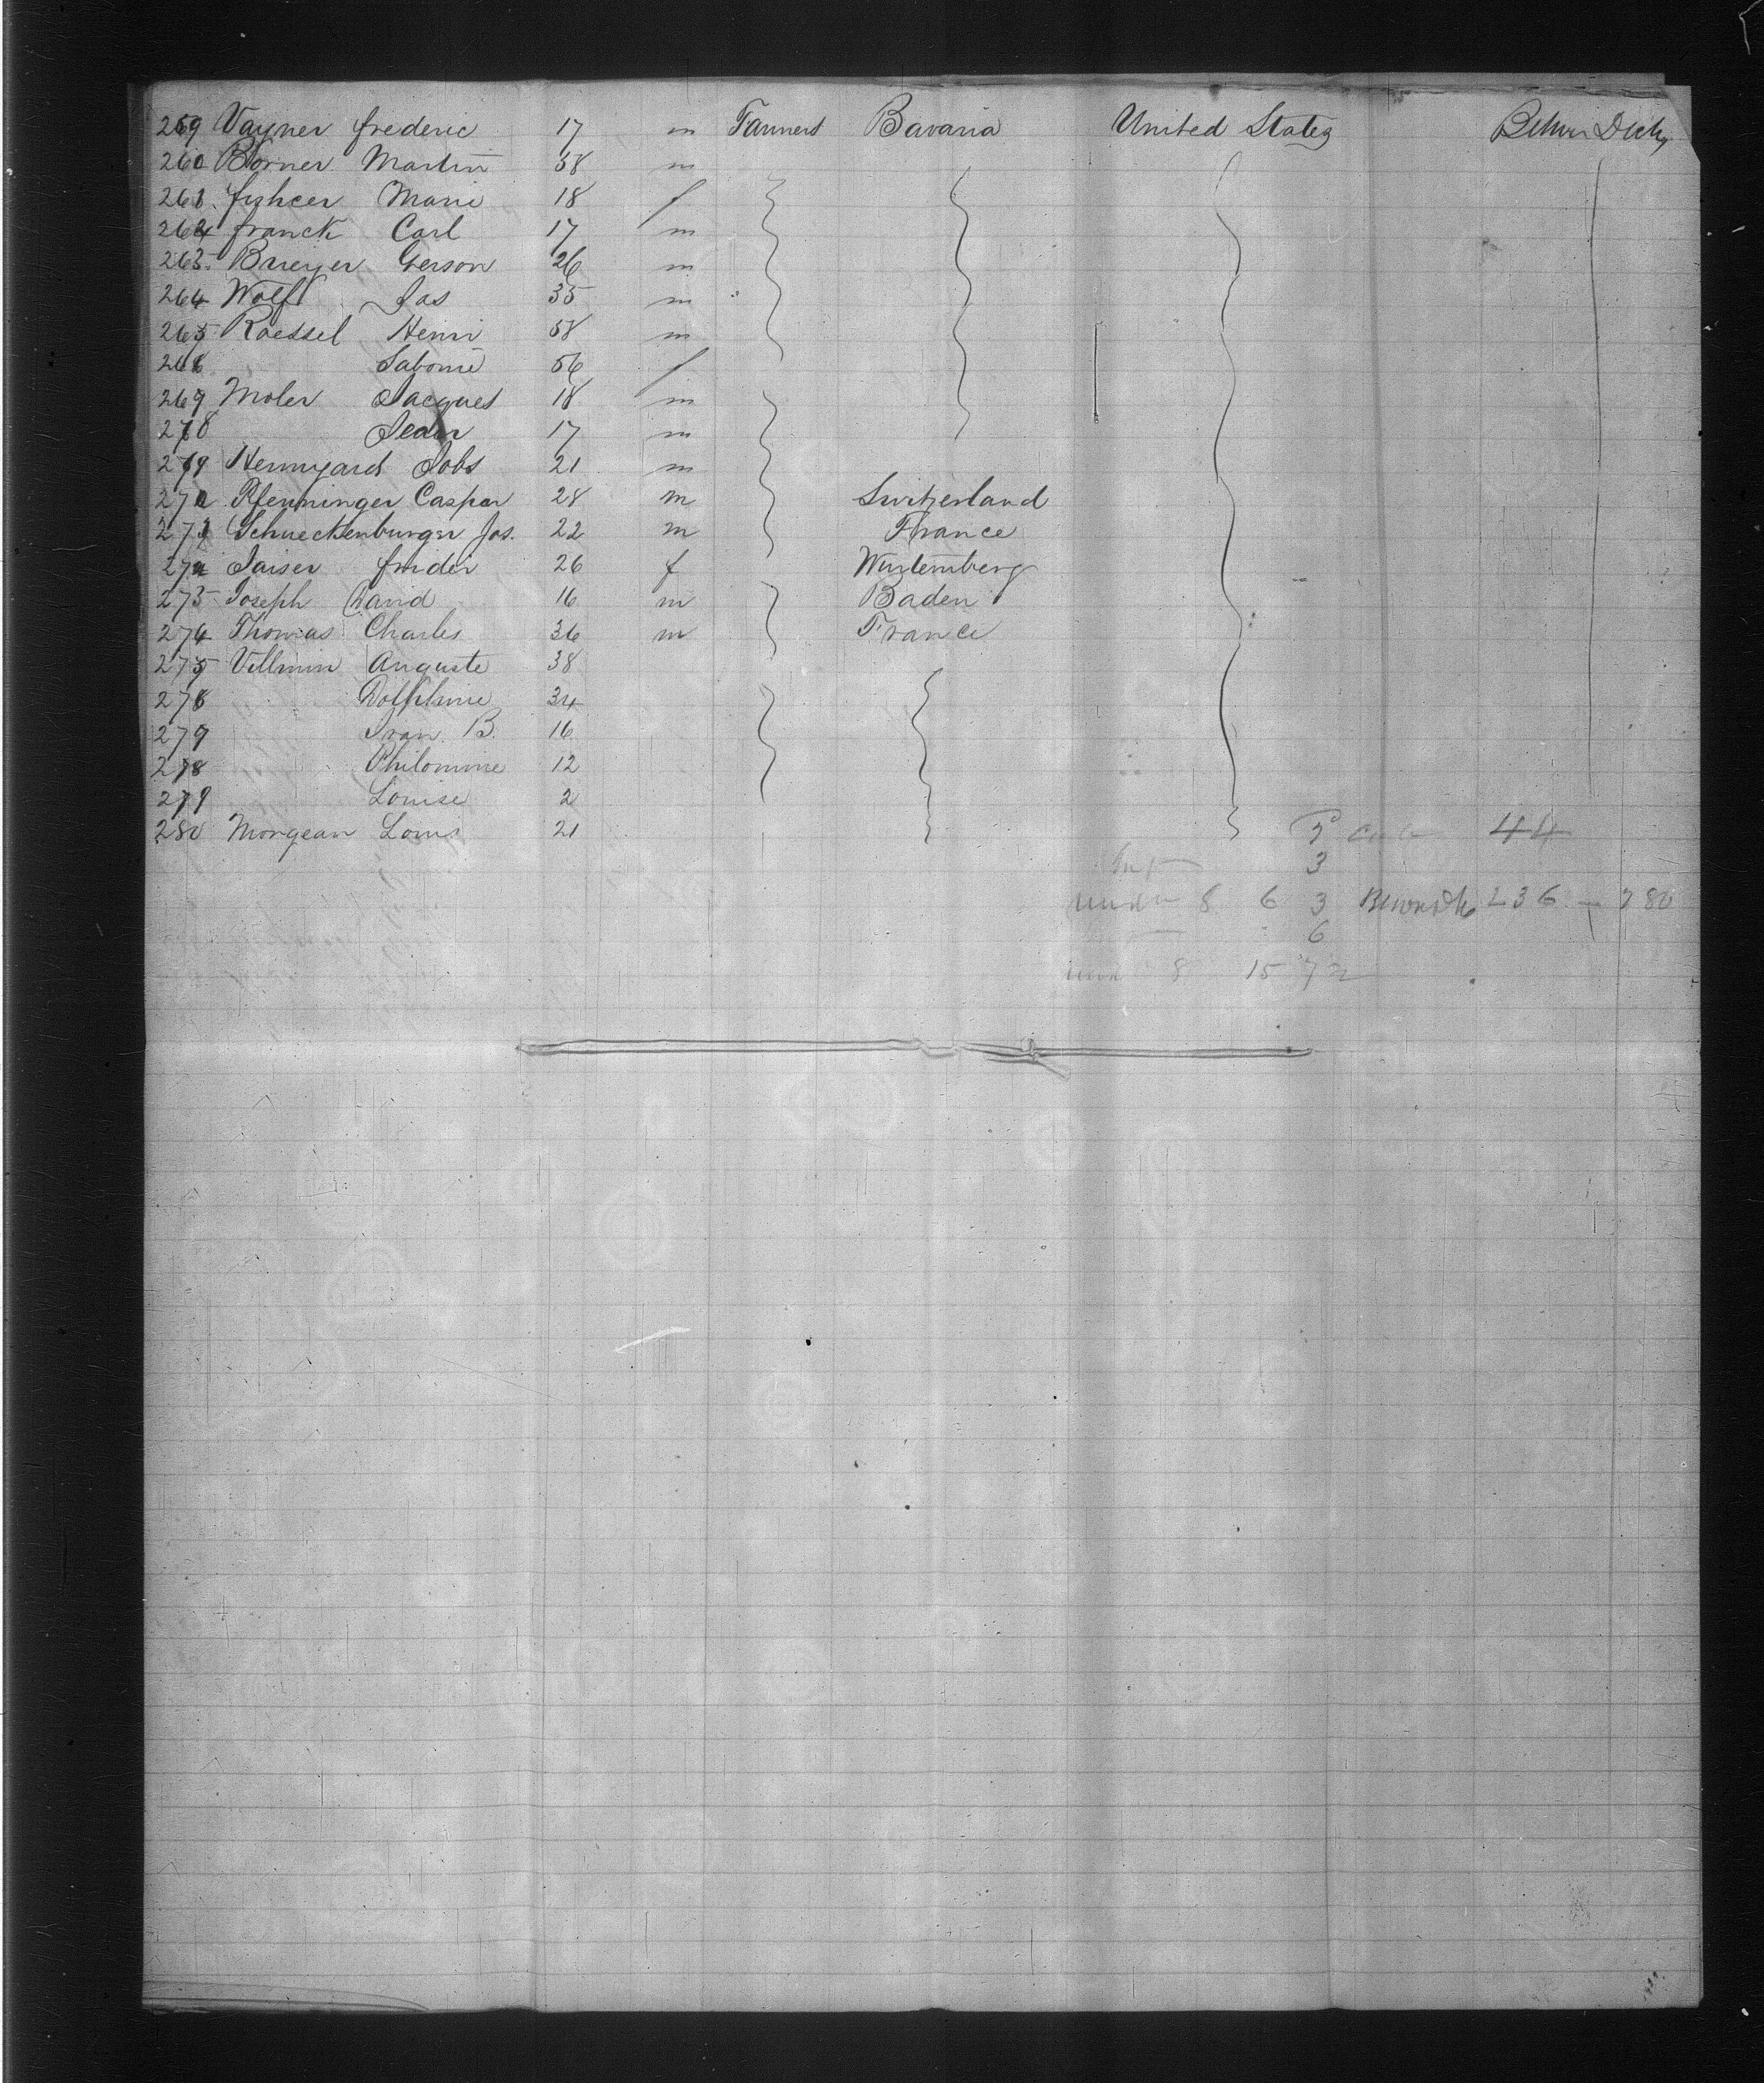 259 Vayner frederic 17 m Farmers Bavaria United States Betwn Decks
260 Borner Martin 38 m
261 fishcer Marie 18 f
262 franck Carl 17 m
263 Brieyer Gerson 26 m
264 Wolff Jas 35 m
265 Roessel Henri 58 m
268 Sabonie 56 f
269 Moler Jacques 18 m
270 Jean 17 m
279 Hennyard Jobs 21 m
272 Pfenninger Caspar 28 m Switzerland
273 Schneckenburger Jos. 22 m France
272 Jaiser frider 26 f Wurtemberg
273 Joseph David 16 m Baden
274 Thomas Charles 36 m France
275 Villmin Auguste 38
278 Dolphine 34
279 Jean B. 16
278 Philomine 12
279 Louise 2
280 Morgean Louis 21 44
3
under 8 6 3 236 — 280
6
8 15 72